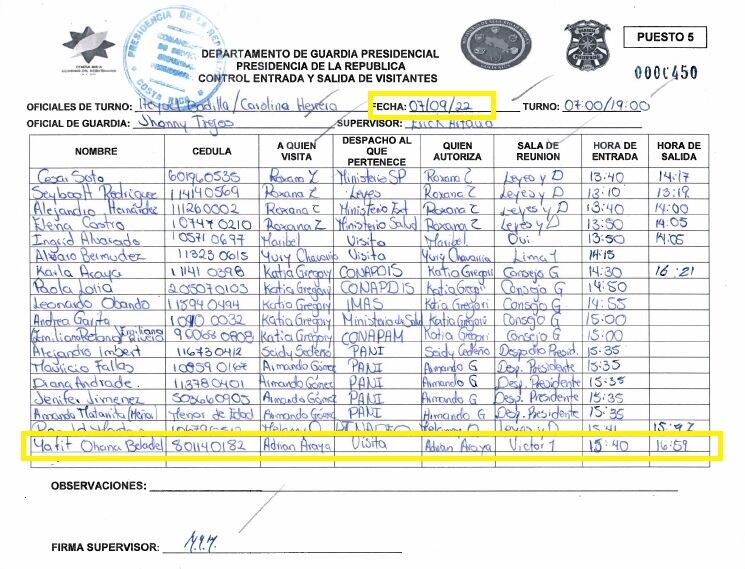 PRESIDENCIA DE LA REP
COSTA RICA
PUESTO 5
DEPARTAMENTO DE GUARDIA PRESIDENCIAL
PRESIDENCIA DE LA REPUBLICA
CONTROL ENTRADA Y SALIDA DE VISITANTES
0000450
OFICIALES DE TURNO: Padilla/Carolina Herrera FECHA: 07/09/22 TURNO: 07:00/19:00
OFICIAL DE GUARDIA: Jhonny Trejos SUPERVISOR: Erick
NOMBRE CEDULA A QUIEN VISITA DESPACHO AL QUE PERTENECE QUIEN AUTORIZA SALA DE REUNION HORA DE ENTRADA HORA DE SALIDA
Cesar Soto 601960535 Roxana Z Ministerio SP Roxana Z Leyes y D 13:40 14:17
Rodriguez 114140569 Roxana Z Leyes Roxana Z Leyes y D 13:10 13:19
Alejandro Hernández 111260002 Roxana Z Ministerio Ext Roxana Z Leyes y D 13:40 14:00
Elena Castro 107470210 Roxana Z Ministerio Salud Roxana Z Leyes y D 13:50 14:05
Ingrid Alvarado 10571 0697 Maribel Visita Maribel 13:50 14:05
Alvaro Bermudez 11323 0615 Yury Chavarria Visita Yury Chavarria Lima 1 14:15
Karla Araya 11141 0398 Katia Gregory CONAPDIS Katia Gregori Consejo G 14:30 16:21
Paola Loria 205070103 Katia Gregory CONAPDIS Katia Gregori Consejo G 14:50
Leonardo Obando 11594 0494 Katia Gregory IMAS Katia Gregori Consejo G 14:55
Andrea Garita 10910 0032 Katia Gregory Ministerio de Salud Katia Gregori Consejo G 15:00
Emiliana Rivera 90068 0808 Katia Gregory CONAPAM Katia Gregori Consejo G 15:00
Alejandro Imbert 116730412 Saidy Sedeño PANI Saidy Cedeño Despacho Presid. 15:35
Mauricio Fallas 10859 0167 Armando Gómez PANI Armando G Desp. Presidente 15:35
Diana Andrade. 11378 0401 Armando Gómez PANI Armando G Desp. Presidente 15:35
Jenifer Jimenez 503660905 Armando Gómez PANI Armando G Desp. Presidente 15:35
Armando Matarrita (Menor) Menor de Edad Armando Gómez PANI Armando G Desp. Presidente 15:35
15:41
Yafit Ohana Beladel 801140182 Adrian Araya Visita Adrian Araya Victor 1 15:40 16:59
OBSERVACIONES:
FIRMA SUPERVISOR: